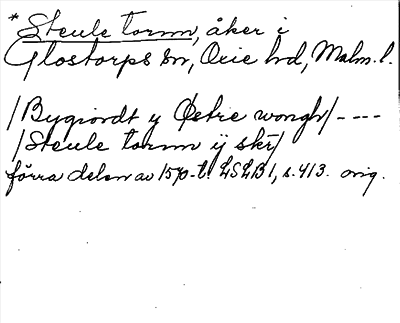 *Steule torm, åker i
Glostorps sn, Oxie hd, Malm. l.
/Bygiordt y Østre wongh/----
/Steule torm ij skr/
förra delen av 1570-t. LSLB1, s. 413. orig.